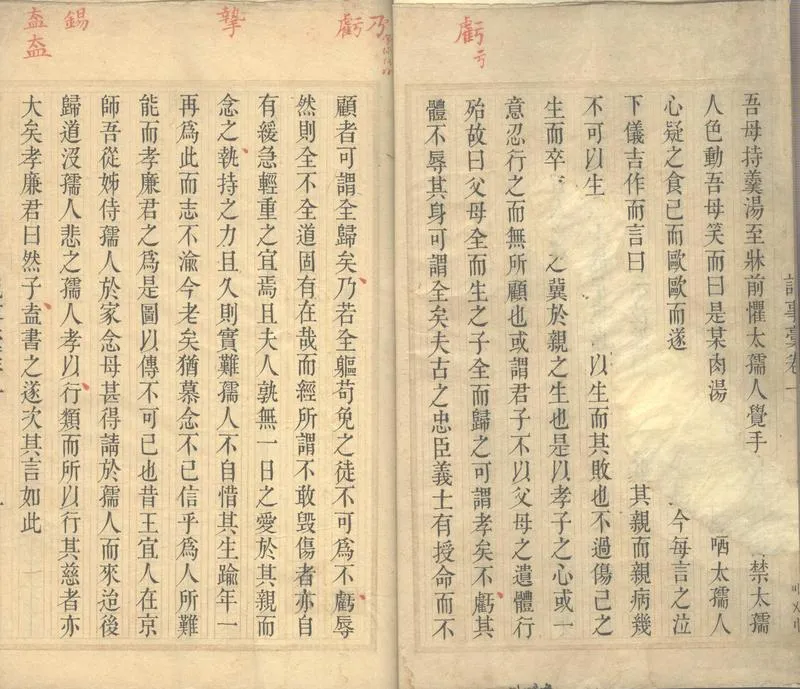 虧亏
吾母持羹湯至牀前懼太孺人覺手禁太孺
人色動吾母笑而曰是某肉湯哂太孺人
心疑之食已而歐歐而遂今每言之泣
下儀吉作而言曰其親而親病幾
不可以生以生而其敗也不過傷己之
生而卒之冀於親之生也是以孝子之心或一
意忍行之而無所顧也或謂君子不以父母之遺體行
殆故曰父母全而生之子全而歸之可謂孝矣不虧其
體不辱其身可謂全矣夫古之忠臣義士有授命而不
乃
虧
摯
錫
盍盍
顧者可謂全歸矣乃若全軀苟免之徒不可為不虧辱
然則全不全道固有在哉而經所謂不敢毀傷者亦自
有緩急輕重之宜焉且夫人孰無一日之愛於其親而
念之執持之力且久則實難孺人不自惜其生踰年一
再為此而志不渝今老矣猶慕念不已信乎為人所難
能而孝廉君之為是圖以傳不可已也昔王宜人在京
師吾從姊侍孺人於家念母甚得請於孺人而來迨後
歸道沒孺人悲之孺人孝以行類而所以行其慈者亦
大矣孝廉君曰然子盍書之遂次其言如此